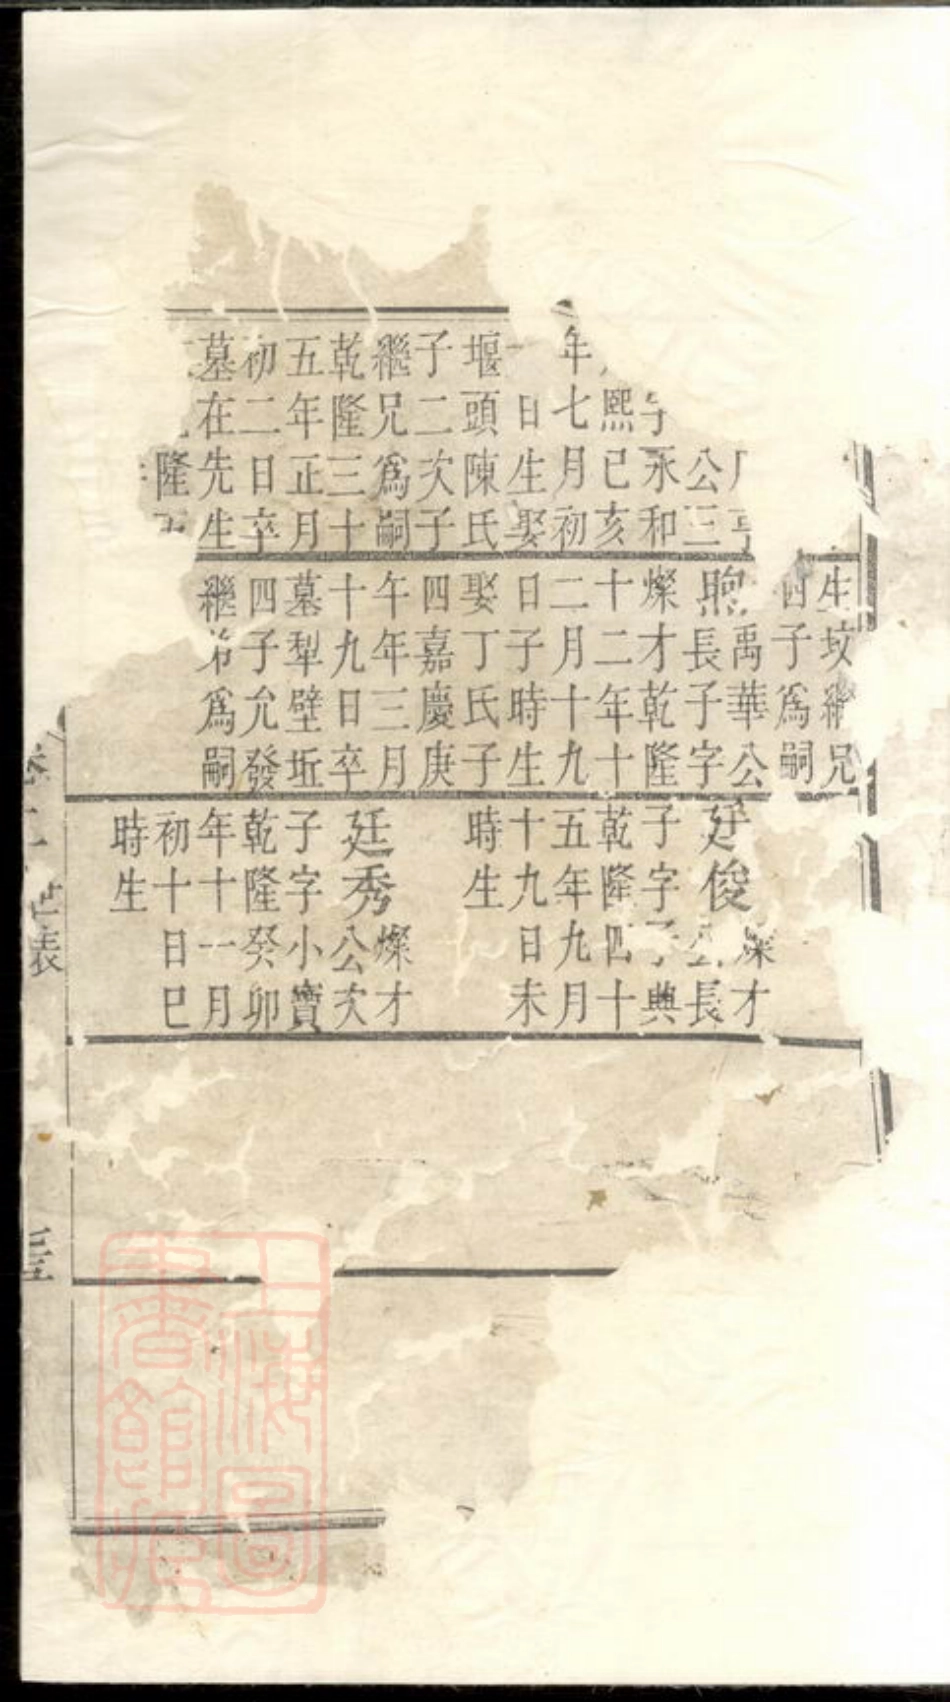 公三
字永和
熙己亥
年七月初
日生娶
堰頭陳氏
子二次子
繼兄爲嗣
乾隆三十
五年正月
初二日卒
墓在先生
隆
生坟繼兄
四子爲嗣
禹華公
煦長子字
燦才乾隆
十二年十
二月十九
日子時生
娶丁氏子
四嘉慶庚
午年三月
十九日卒
墓犁壁坵
四子允發
繼弟爲嗣
燦才
廷俊公長
子字子典
乾隆四十
五年九月
十九日未
時生
燦才
廷秀公次
子字小寶
乾隆癸卯
年十一月
初十日巳
時生
世表
上海圖
書館藏